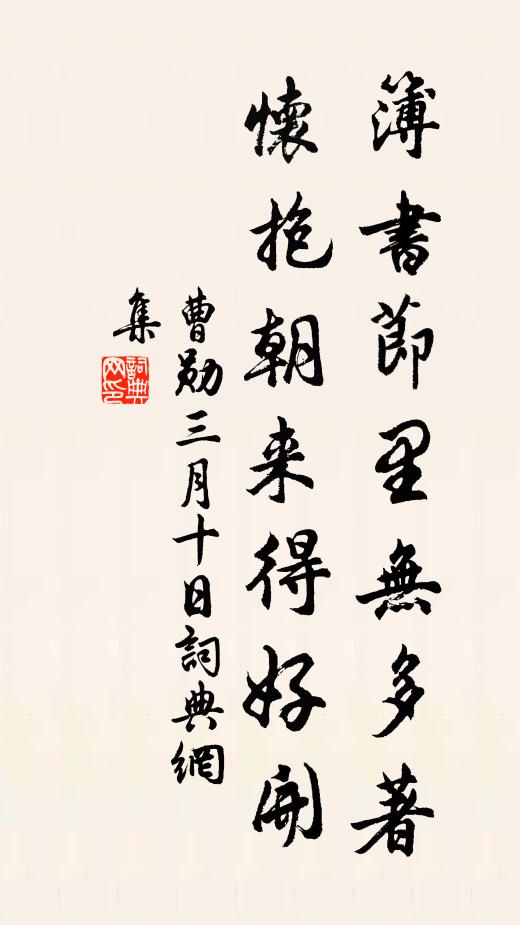 簿書節里無多著
懷抱朝来得好開
曹勛三月十日詞典網
集
詞典網印